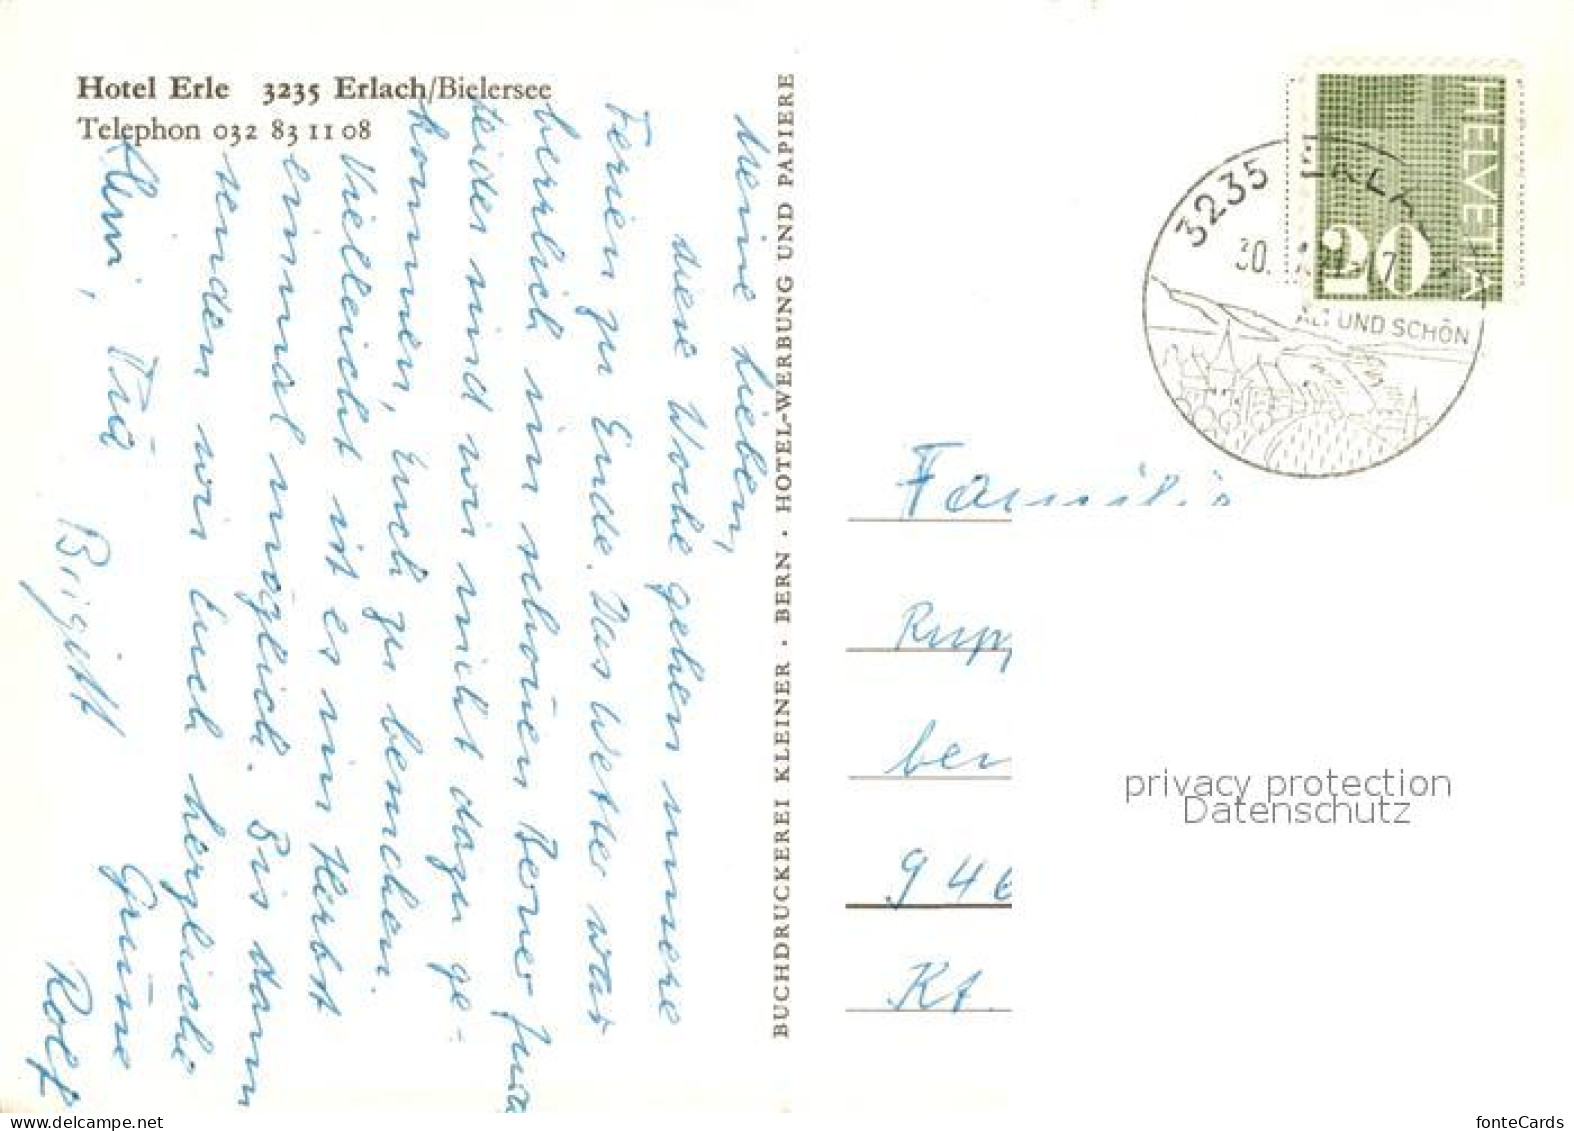 Hotel Erle 3235 Erlach/Bielersee
Telephon 032 83 11 08
Meine Lieben,
diese Woche gehen unsere
Ferien zu Ende. Das Wetter war
herrlich im schönen Berner Jura
Leider sind wir nicht dazu ge-
kommen, Euch zu besuchen.
Vielleicht ist es im Herbst
einmal möglich. Bis dann
senden wir Euch herzliche
Grüsse
Brigitt
Rolf
BUCHDRUCKEREI KLEINER · BERN · HOTEL-WERBUNG UND PAPIERE
HELVETIA
20
3235 ERLACH
30.
UND SCHÖN
Familie
Rupp
ber
946
Kt.
privacy protection
Datenschutz
fonteCards